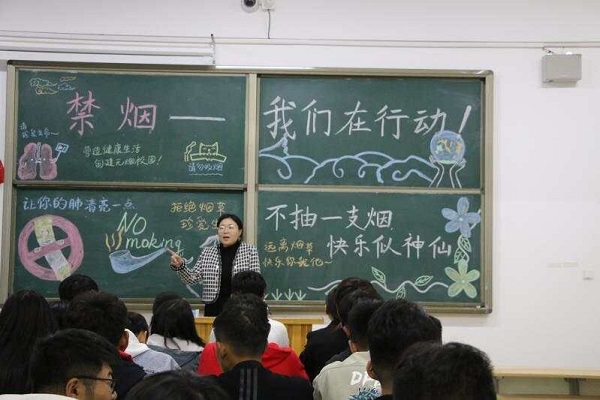 禁烟——
我们在行动！
营造健康生活
创建无烟校园！
请勿吸烟
让你的肺清亮一点
NO
smoking
拒绝烟草
珍爱
不抽一支烟
快乐似神仙
远离烟草
快乐你我他~